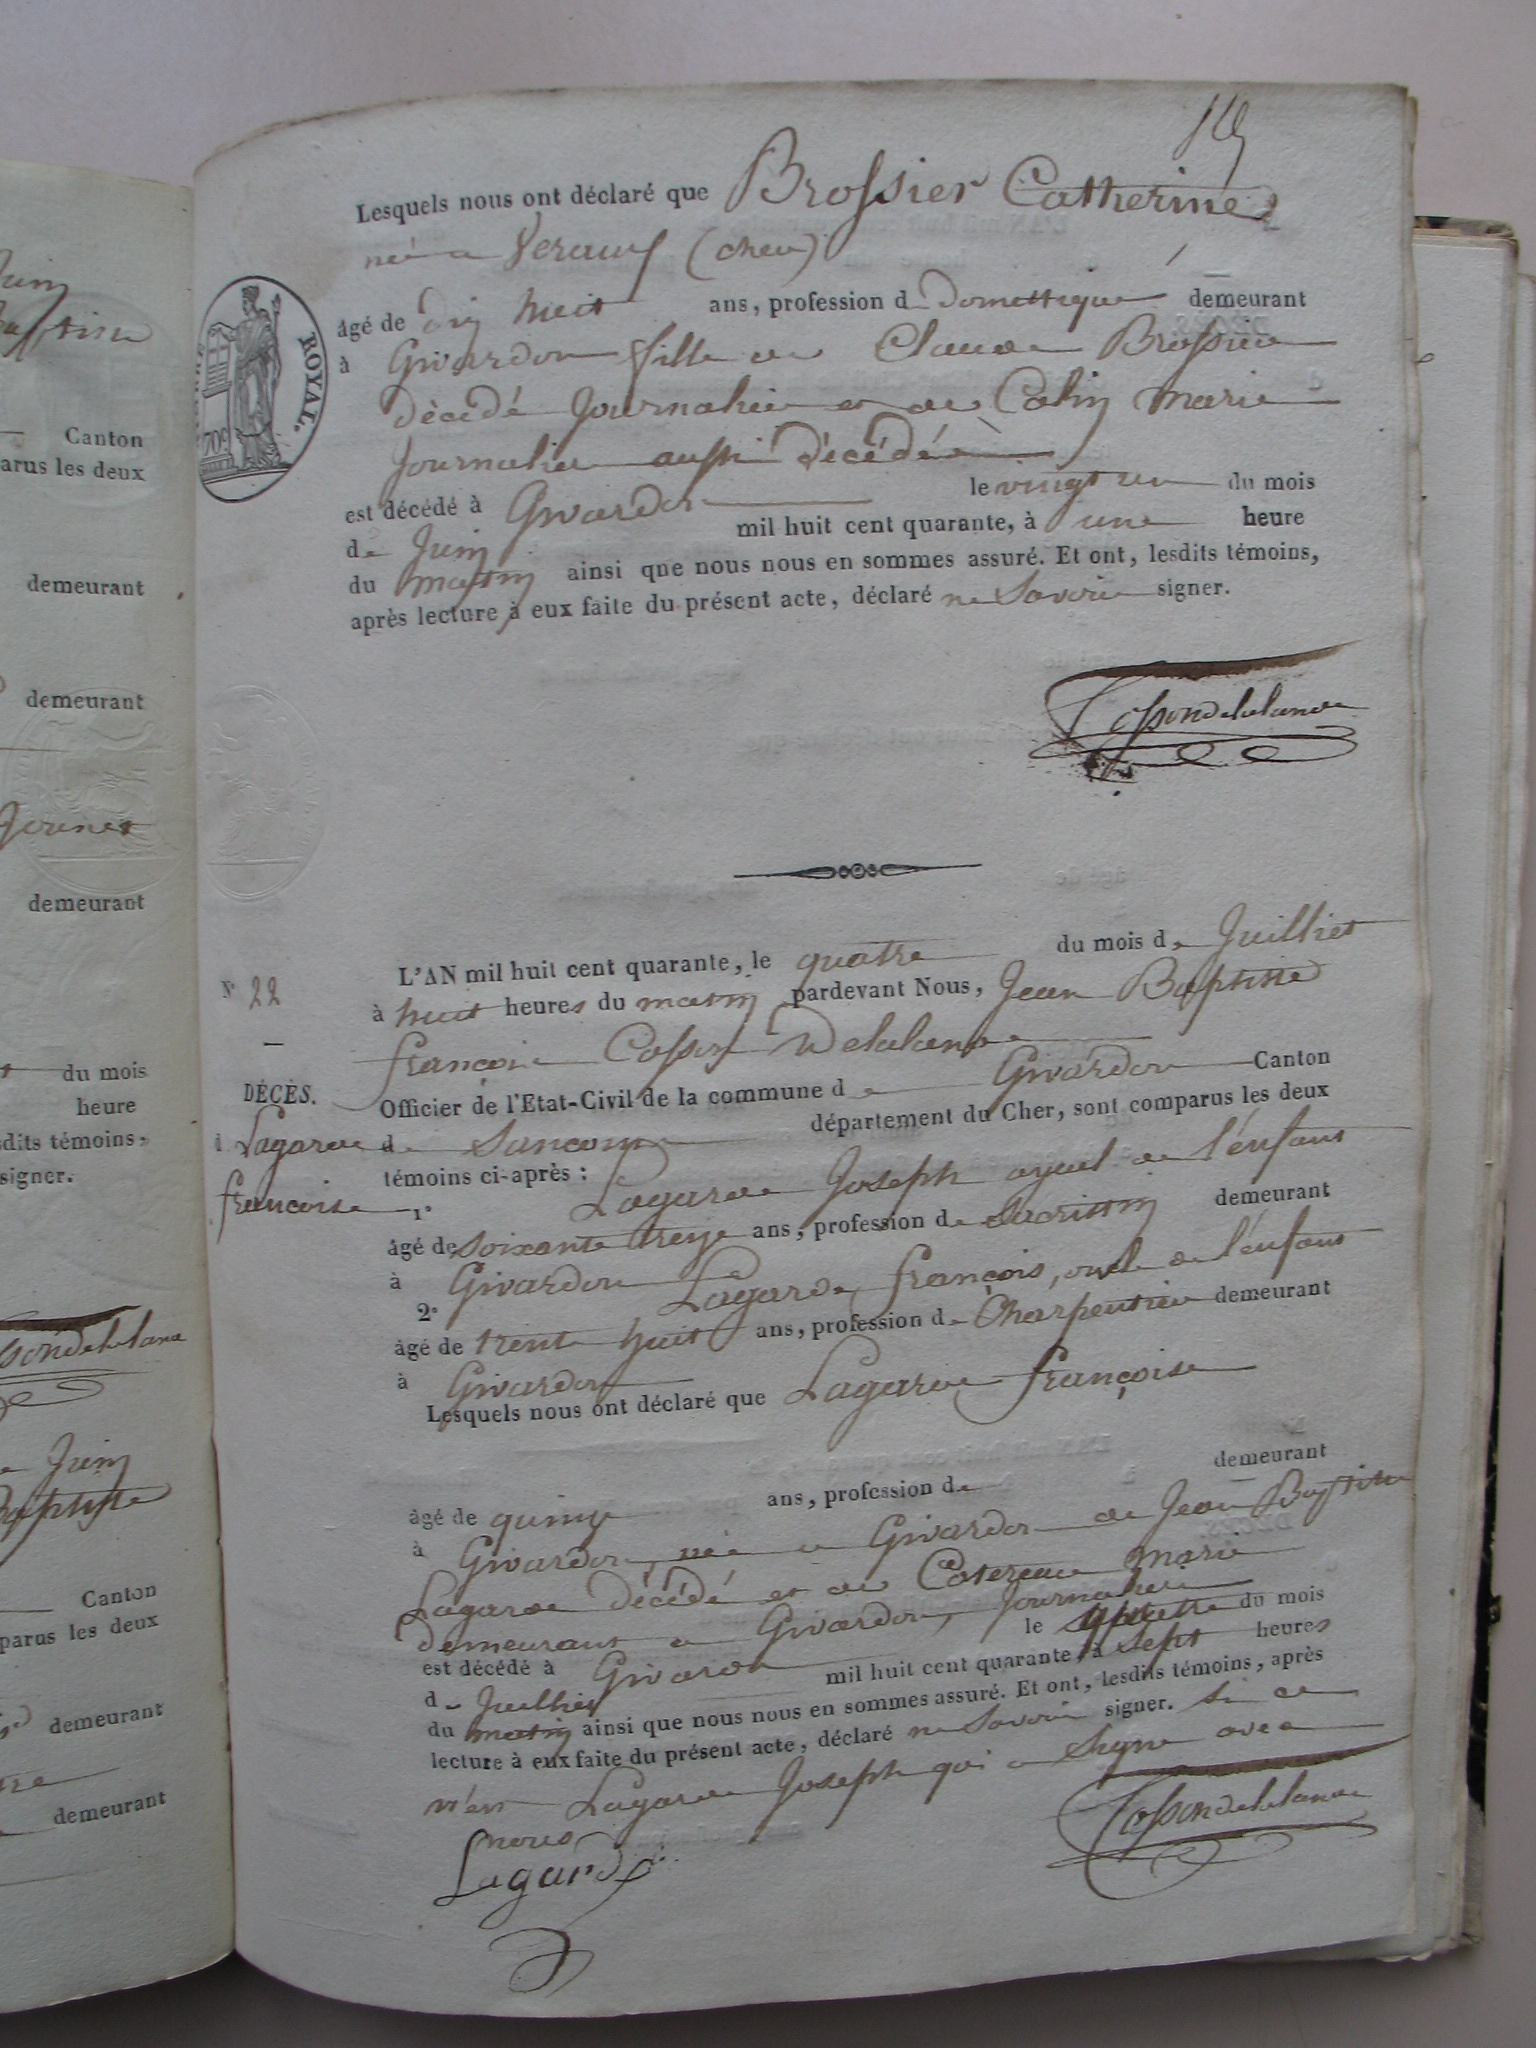 Lesquels nous ont déclaré que Brossier Catherine
née a Veraux (cher)
âgé de dix huit ans, profession de domestique demeurant
à Givardon fille de Claude Brossier
décédé Journalier et de Colin Marie
Journaliere aussi décédée
est décédé à Givardon le vingt un du mois
de Juin mil huit cent quarante, à une heure
du matin ainsi que nous nous en sommes assuré. Et ont, lesdits témoins,
après lecture à eux faite du présent acte, déclaré ne Savoir signer.
Cossondelalande
ROYAL.
70c
N° 22
DÉCÈS.
Lagarde
francoise
L'AN mil huit cent quarante, le quatre du mois de Juilliet
à huit heures du matin pardevant Nous, Jean Baptiste
françois Cosson Delalande
Officier de l'Etat-Civil de la commune de Givardon Canton
de Sancoins département du Cher, sont comparus les deux
témoins ci-après :
1° Lagarde Joseph ayeul de l'enfant
âgé de soixante treize ans, profession de Sacristin demeurant
à Givardon
2° Lagarde françois, oncle de l'enfant
âgé de trente huit ans, profession de Charpentier demeurant
à Givardon
Lesquels nous ont déclaré que Lagarde françoise
âgé de quinze ans, profession de demeurant
à Givardon, née a Givardon de Jean Baptiste
Lagarde décédé et de Marie
demeurant a Givardon, Journaliere
est décédé à Givardon le du mois
de Juilliet mil huit cent quarante, à Sept heures
du matin ainsi que nous nous en sommes assuré. Et ont, lesdits témoins, après
lecture à eux faite du présent acte, déclaré ne Savoir signer. Si ce
n'est Lagarde Joseph qui a Signe avec
nous
Lagarde
Cossondelalande
Juin
Baptiste
Canton
arus les deux
demeurant
demeurant
demeurant
du mois
heure
sdits témoins,
signer.
ssondelalande
Juin
Baptiste
Canton
parus les deux
demeurant
demeurant